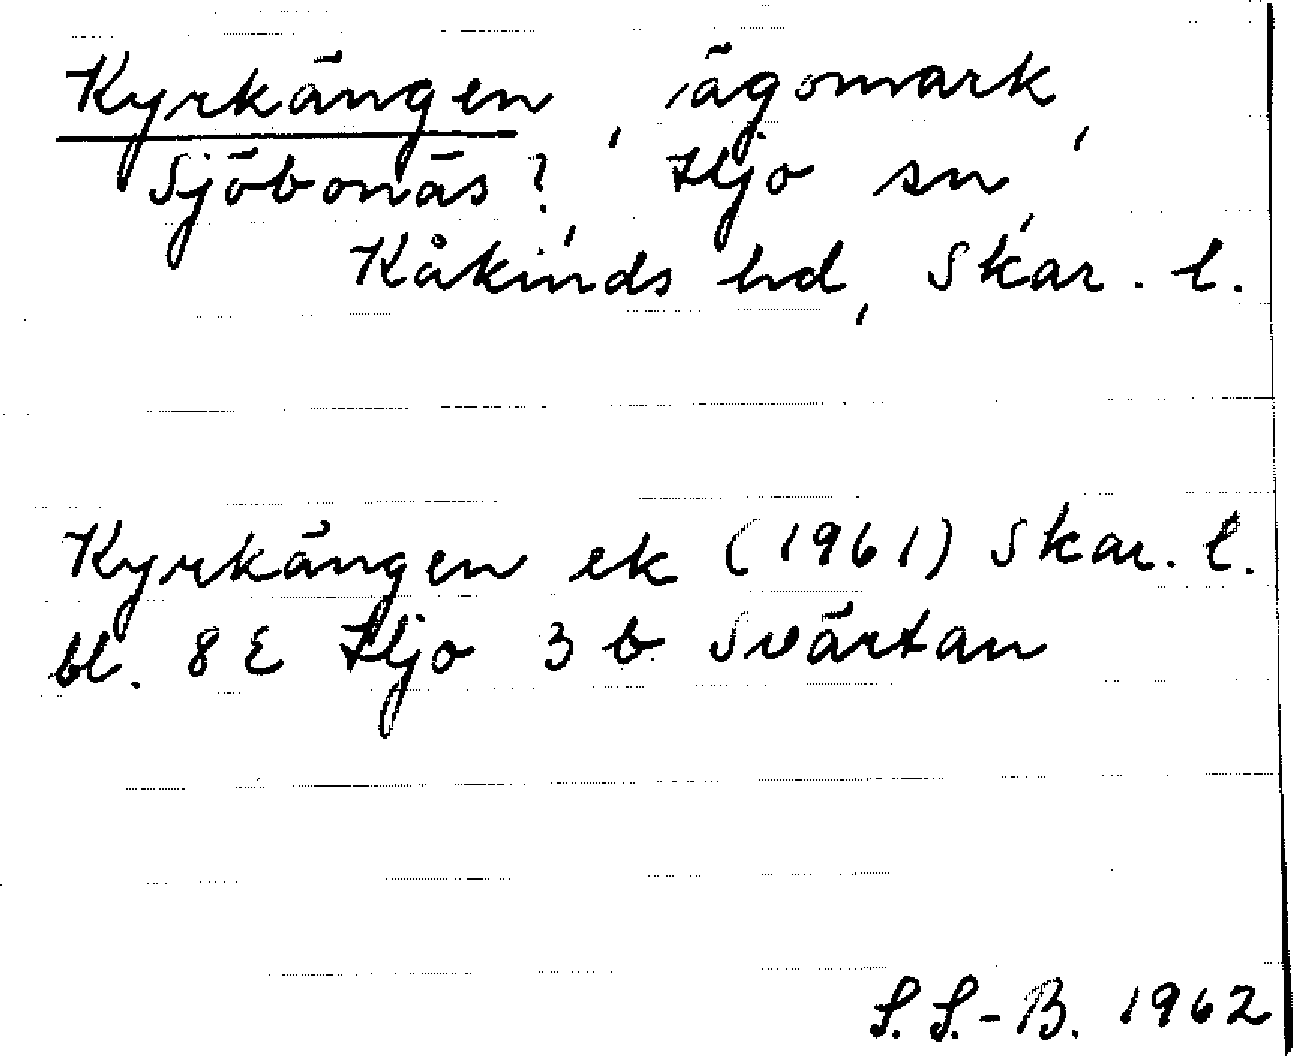 Kyrkängen, ägomark,
Sjöbonäs?, Hjo sn,
Kåkinds hd, Skar. l.
Kyrkängen ek (1961) Skar. l.
bl. 8 E Hjo 3 b Svärtan
S. S.-B. 1962